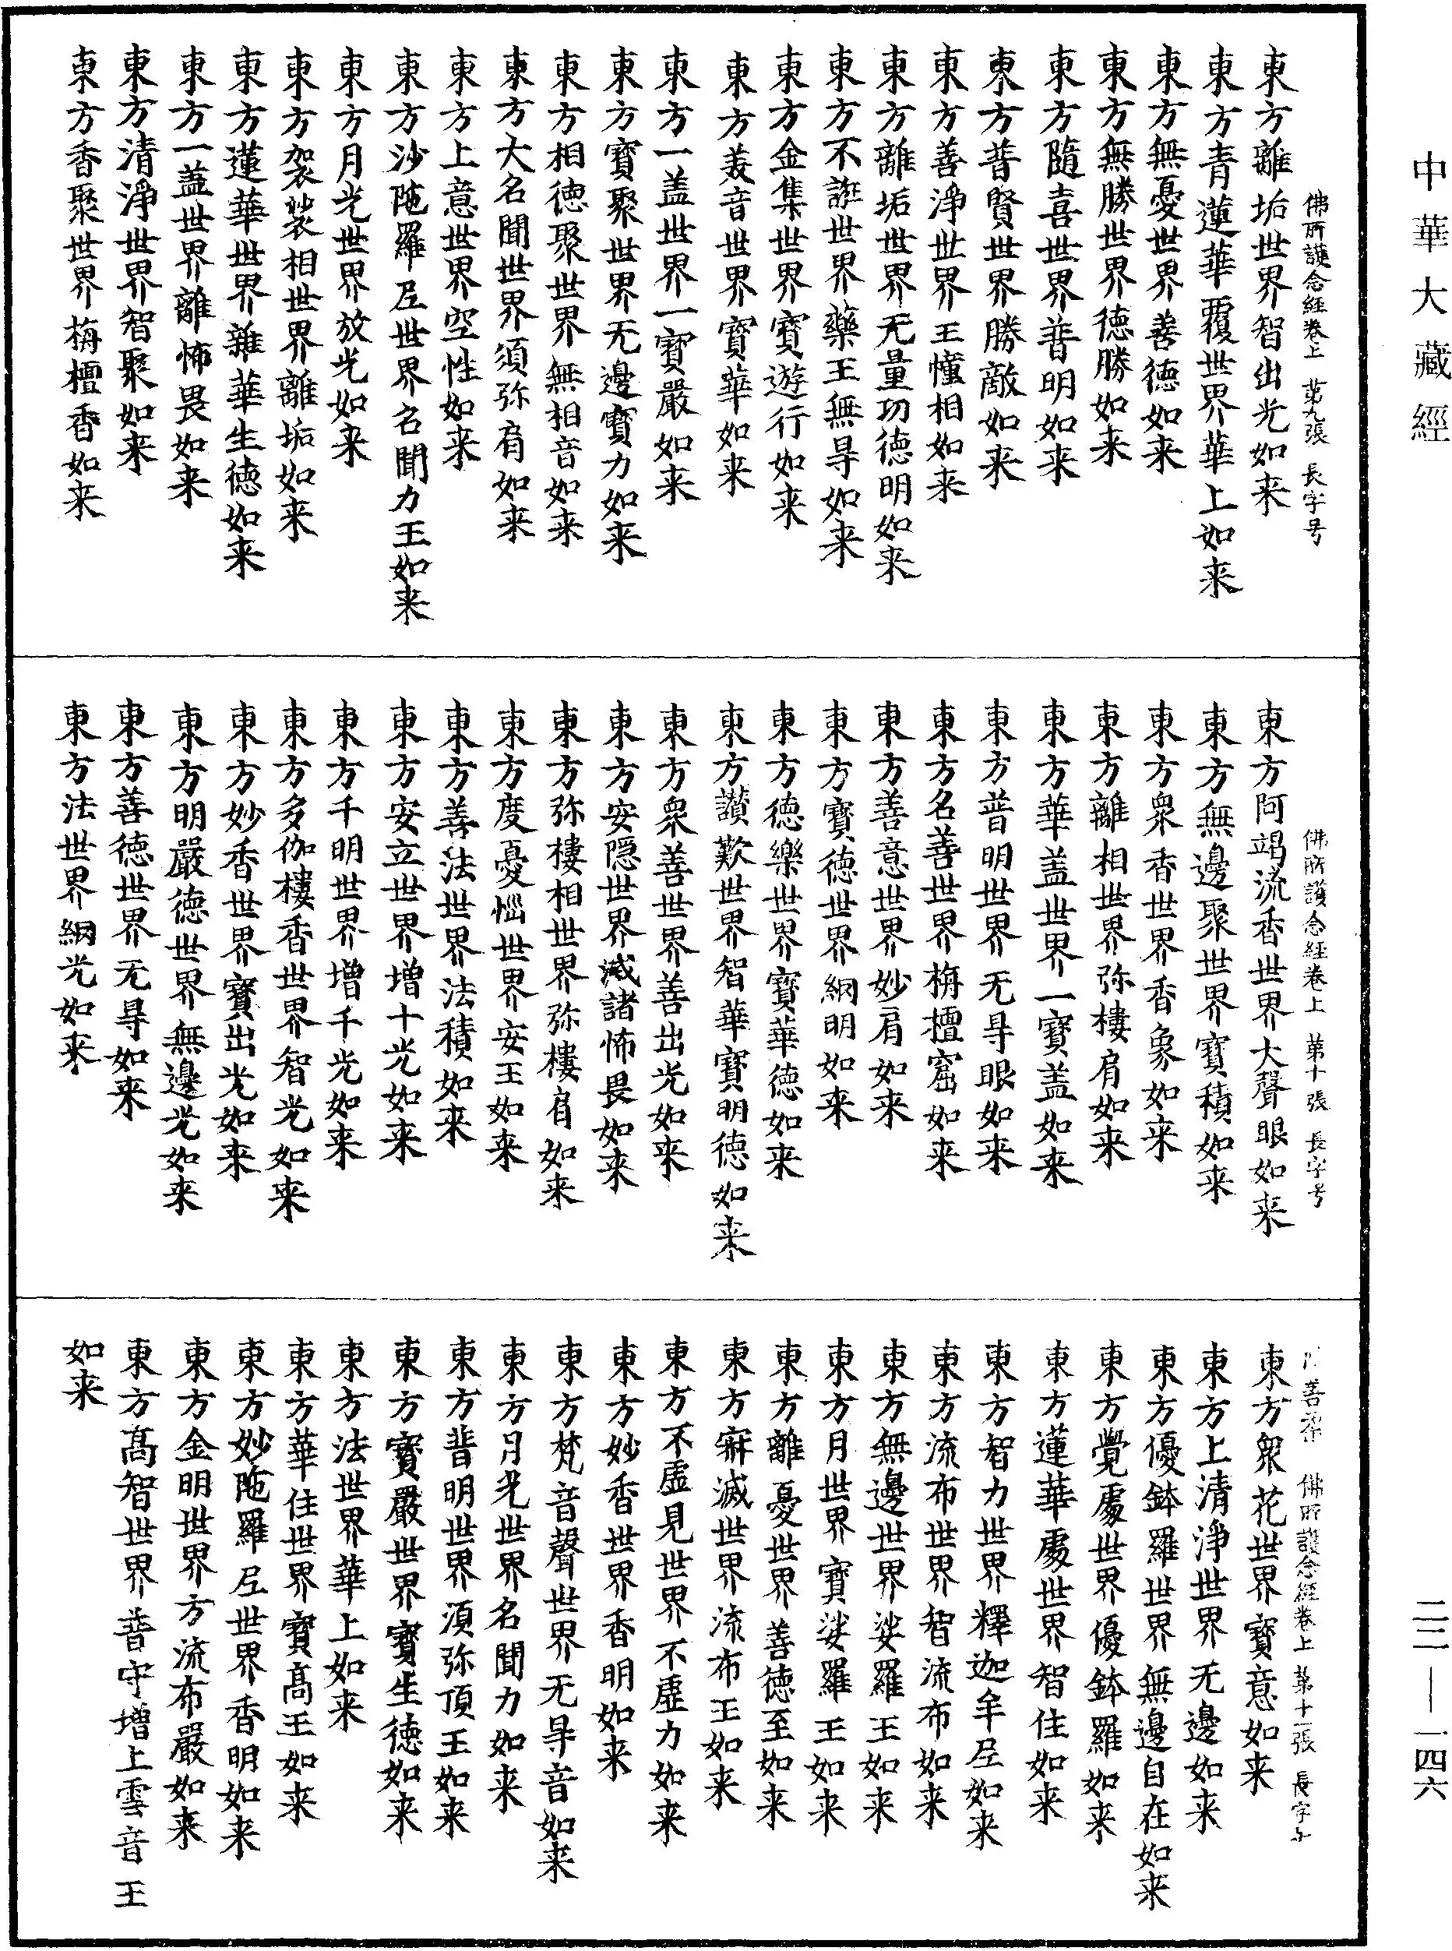 中華大藏經
佛所護念經卷上 第九張 長字号
東方離垢世界智出光如来
東方青蓮華覆世界華上如来
東方無憂世界善德如来
東方無勝世界德勝如来
東方隨喜世界普明如来
東方普賢世界勝敵如来
東方善淨世界王幢相如来
東方離垢世界无量功德明如来
東方不誑世界藥王無㝵如来
東方金集世界寶遊行如来
東方美音世界寶華如来
東方一盖世界一寶嚴如来
東方寶聚世界无邊寶力如来
東方相德聚世界無相音如来
東方大名聞世界須弥肩如来
東方上意世界空性如来
東方沙陁羅尼世界名聞力王如来
東方月光世界放光如来
東方袈裟相世界離垢如来
東方蓮華世界雜華生德如来
東方一盖世界離怖畏如来
東方清淨世界智聚如来
東方香聚世界栴檀香如来
佛所護念經卷上 第十張 長字号
東方阿竭流香世界大聲眼如来
東方無邊聚世界寶積如来
東方衆香世界香象如来
東方離相世界弥樓肩如来
東方華盖世界一寶盖如来
東方普明世界无㝵眼如来
東方名善世界栴檀窟如来
東方善意世界妙肩如来
東方寶德世界網明如来
東方德樂世界寶華德如来
東方讃歎世界智華寶明德如来
東方衆善世界善出光如来
東方安隱世界滅諸怖畏如来
東方弥樓相世界弥樓肩如来
東方度憂惱世界安王如来
東方善法世界法積如来
東方安立世界增十光如来
東方千明世界增千光如来
東方多伽樓香世界智光如来
東方妙香世界寶出光如来
東方明嚴德世界無邊光如来
東方善德世界无㝵如来
東方法世界網光如来
佛所護念經卷上 第十一張 長字号
東方衆花世界寶意如来
東方上清淨世界无邊如来
東方優鉢羅世界無邊自在如来
東方覺處世界優鉢羅如来
東方蓮華處世界智住如来
東方智力世界釋迦牟尼如来
東方流布世界智流布如来
東方無邊世界娑羅王如来
東方月世界寶娑羅王如来
東方離憂世界善德至如来
東方寂滅世界流布王如来
東方不虚見世界不虚力如来
東方妙香世界香明如来
東方梵音聲世界无㝵音如来
東方月光世界名聞力如来
東方普明世界須弥頂王如来
東方寶嚴世界寶生德如来
東方法世界華上如来
東方華住世界寶高王如来
東方妙陁羅尼世界香明如来
東方金明世界方流布嚴如来
東方高智世界普守增上雲音王
如来
二二—一四六